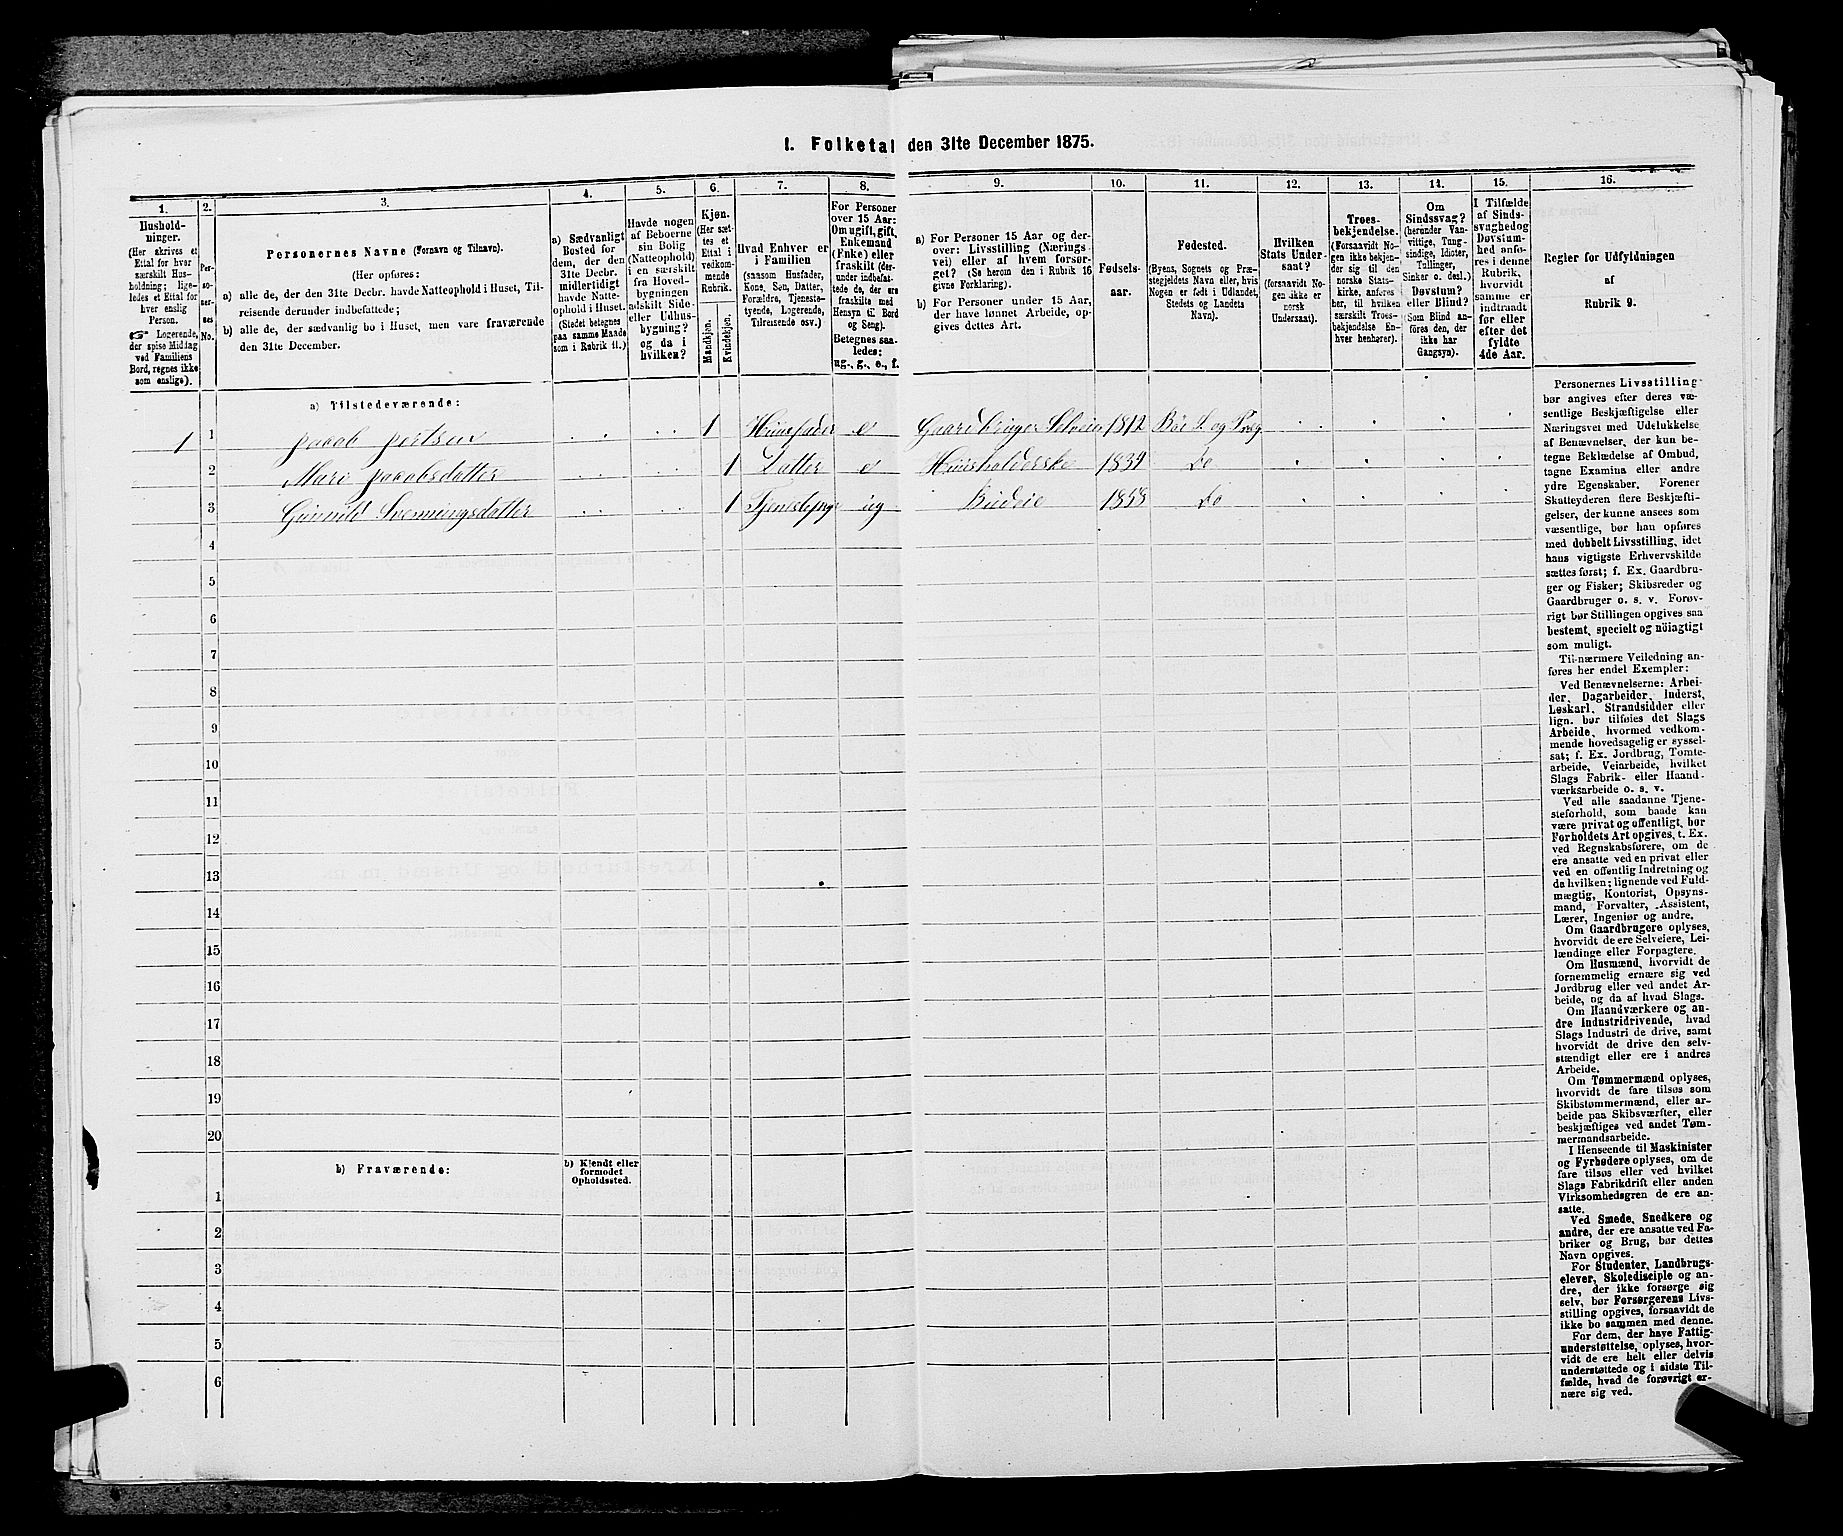 I. Folketal den 31te December 1875.
1. 2. 3. 4. 5. 6. 7. 8. 9. 10. 11. 12. 13. 14. 15. 16.
Hushold-
ninger.
(Her skrives et
Ettal for hver
særskilt Hus-
holdning; lige-
ledes et Ettal for
hver enslig
Person.
☞ Logerende,
der spise Middag
ved Familiens
Bord, regnes ikke
som enslige).
Per-
so-
ner-
nes
No.
Personernes Navne (Fornavn og Tilnavn).
(Her opføres:
a) alle de, der den 31te Decbr. havde Natteophold i Huset, Til-
reisende derunder indbefattede;
b) alle de, der sædvanlig bo i Huset, men vare fraværende
den 31te December.
a) Sædvanligt
Bosted for
dem, der den
31te Decbr.
midlertidigt
havde Natte-
ophold i Huset.
(Stedet betegnes
paa samme Maade
som i Rubrik 11.)
Havde nogen
af Beboerne
sin Bolig
(Natteophold)
i en særskilt
fra Hoved-
bygningen
adskilt Side-
eller Udhus-
bygning?
og da i
hvilken?
Kjøn.
(Her sæt-
tes et
Ettal i
vedkom-
mende
Rubrik.
Mandkjøn.
Kvindekjøn.
Hvad Enhver er
i Familien
(saasom Husfader,
Kone, Søn, Datter,
Forældre, Tjeneste-
tyende, Logerende,
Tilreisende osv.)
For Personer
over 15 Aar:
Om ugift, gift,
Enkemand
(Enke) eller
fraskilt (der-
under indbefat-
tede de, der ere
fraskilte med
Hensyn til Bord
og Seng).
Betegnes saa-
ledes:
ug., g., e., f.
a) For Personer 15 Aar og der-
over: Livsstilling (Nærings-
vei) eller af hvem forsør-
get? (Se herom den i Rubrik 16
givne Forklaring).
b) For Personer under 15 Aar,
der have lønnet Arbeide, op-
gives dettes Art.
Fødsels-
aar.
Fødested.
(Byens, Sognets og Præ-
stegjeldets Navn eller, hvis
Nogen er født i Udlandet,
Stedets og Landets
Navn).
Hvilken
Stats Under-
saat?
(forsaavidt No-
gen ikke er
norsk
Undersaat).
Troes-
bekjendelse.
(Forsaavidt No-
gen ikke bekjen-
der sig til den
norske Stats-
kirke, anføres
her, til hvilken
særskilt Troes-
bekjendelse En-
hver henhører).
Om
Sindssvag?
(herunder Van-
vittige, Tung-
sindige, Idioter,
Tullinger,
Sinker o. desl.)
Døvstum?
eller Blind?
(Som Blind an-
føres den, der
ikke har
Gangsyn).
I Tilfælde
af Sinds-
svaghed og
Døvstum-
hed anfø-
res i denne
Rubrik,
hvorvidt
samme er
indtraadt
før eller
efter det
fyldte
4de Aar.
Regler for Udfyldningen
af
Rubrik 9.
a) Tilstedeværende:
1 1 Jacob 1 Huusfader e Gaardbruger Selveier 1812 Bøe S. og Præg
2 Mari Jacobsdatter 1 Datter e Huusholderske 1834 Do
3 Gunnild Svenningsdatter 1 ug Budeie 1853 Do
4
5
6
7
8
9
10
11
12
13
14
15
16
17
18
19
20
b) Fraværende:
b) Kjendt eller
formodet
Opholdssted.
1
2
3
4
5
6
Personernes Livsstilling
bør angives efter deres væ-
sentlige Beskjæftigelse eller
Næringsvei med Udelukkelse
af Benævnelser, der kun be-
tegne Beklædelse af Ombud,
tagne Examina eller andre
ydre Egenskaber. Forener
Skatteyderen flere Beskjæfti-
gelser, der kunne ansees som
væsentlige, bør han opføres
med dobbelt Livsstilling, idet
hans vigtigste Erhvervskilde
sættes først; f. Ex. Gaardbru-
ger og Fisker; Skibsreder og
Gaardbruger o. s. v. Forøv-
rigt bør Stillingen opgives saa
bestemt, specielt og nöiagtigt
som muligt.
Til nærmere Veiledning an-
føres her endel Exempler:
Ved Benævnelserne: Arbei-
der, Dagarbeider, Inderst,
Løskarl, Strandsidder eller
lign. bør tilføies det Slags
Arbeide, hvormed vedkom-
mende hovedsagelig er syssel-
sat; f. Ex. Jordbrug, Tomte-
arbeide, Veiarbeide, hvilket
Slags Fabrik- eller Haand-
værksarbeide o. s. v.
Ved alle saadanne Tjene-
steforhold, som baade kan
være privat og offentligt, bør
Forholdets Art opgives, t. Ex.
ved Regnskabsførere, om de
ere ansatte ved en privat eller
ved en offentlig Indretning og
da hvilken; lignende ved Fuld-
mægtig, Kontorist, Opsyns-
mand, Forvalter, Assistent,
Lærer, Ingeniør og andre.
Om Gaardbrugere oplyses,
hvorvidt de ere Selveiere, Lei-
lændinge eller Forpagtere.
Om Husmænd, hvorvidt de
fornemmelig ernære sig ved
Jordbrug eller ved andet Ar-
beide, og da af hvad Slags.
Om Haandværkere og an-
dre Industridrivende, hvad
Slags Industri de drive, samt
hvorvidt de drive den selv-
stændigt eller ere i andres
Arbeide.
Om Tømmermænd oplyses,
hvorvidt de fare tilsøs som
Skibstømmermænd, eller ar-
beide paa Skibsværfter, eller
beskjæftiges ved andet Tøm-
mermandsarbeide.
I Henseende til Maskinister
og Fyrbødere oplyses, om de
fare tilsøs eller ved hvilket
Slags Fabrikdrift eller anden
Virksomhedsgren de ere an-
satte.
Ved Smede, Snedkere og
andre, der ere ansatte ved Fa-
briker og Brug, bør dettes
Navn opgives.
For Studenter, Landbrugs-
elever, Skoledisciple og an-
dre, der ikke forsørge sig
selv, bør Forsørgerens Livs-
stilling opgives, forsaavidt de
ikke bo sammen med denne.
For dem, der have Fattig-
understøttelse, oplyses, hvor-
vidt de ere helt eller delvis
understøttede og i sidste Til-
fælde, hvad de forøvrigt er-
nære sig ved.